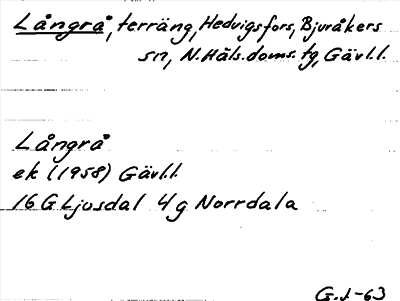 Långrå, terräng, Hedvigsfors, Bjuråkers
sn, N. Häls. doms. tg, Gävl.l.
Långrå
ek (1958) Gävl.l.
16 G Ljusdal 4g Norrdala
G.J-63